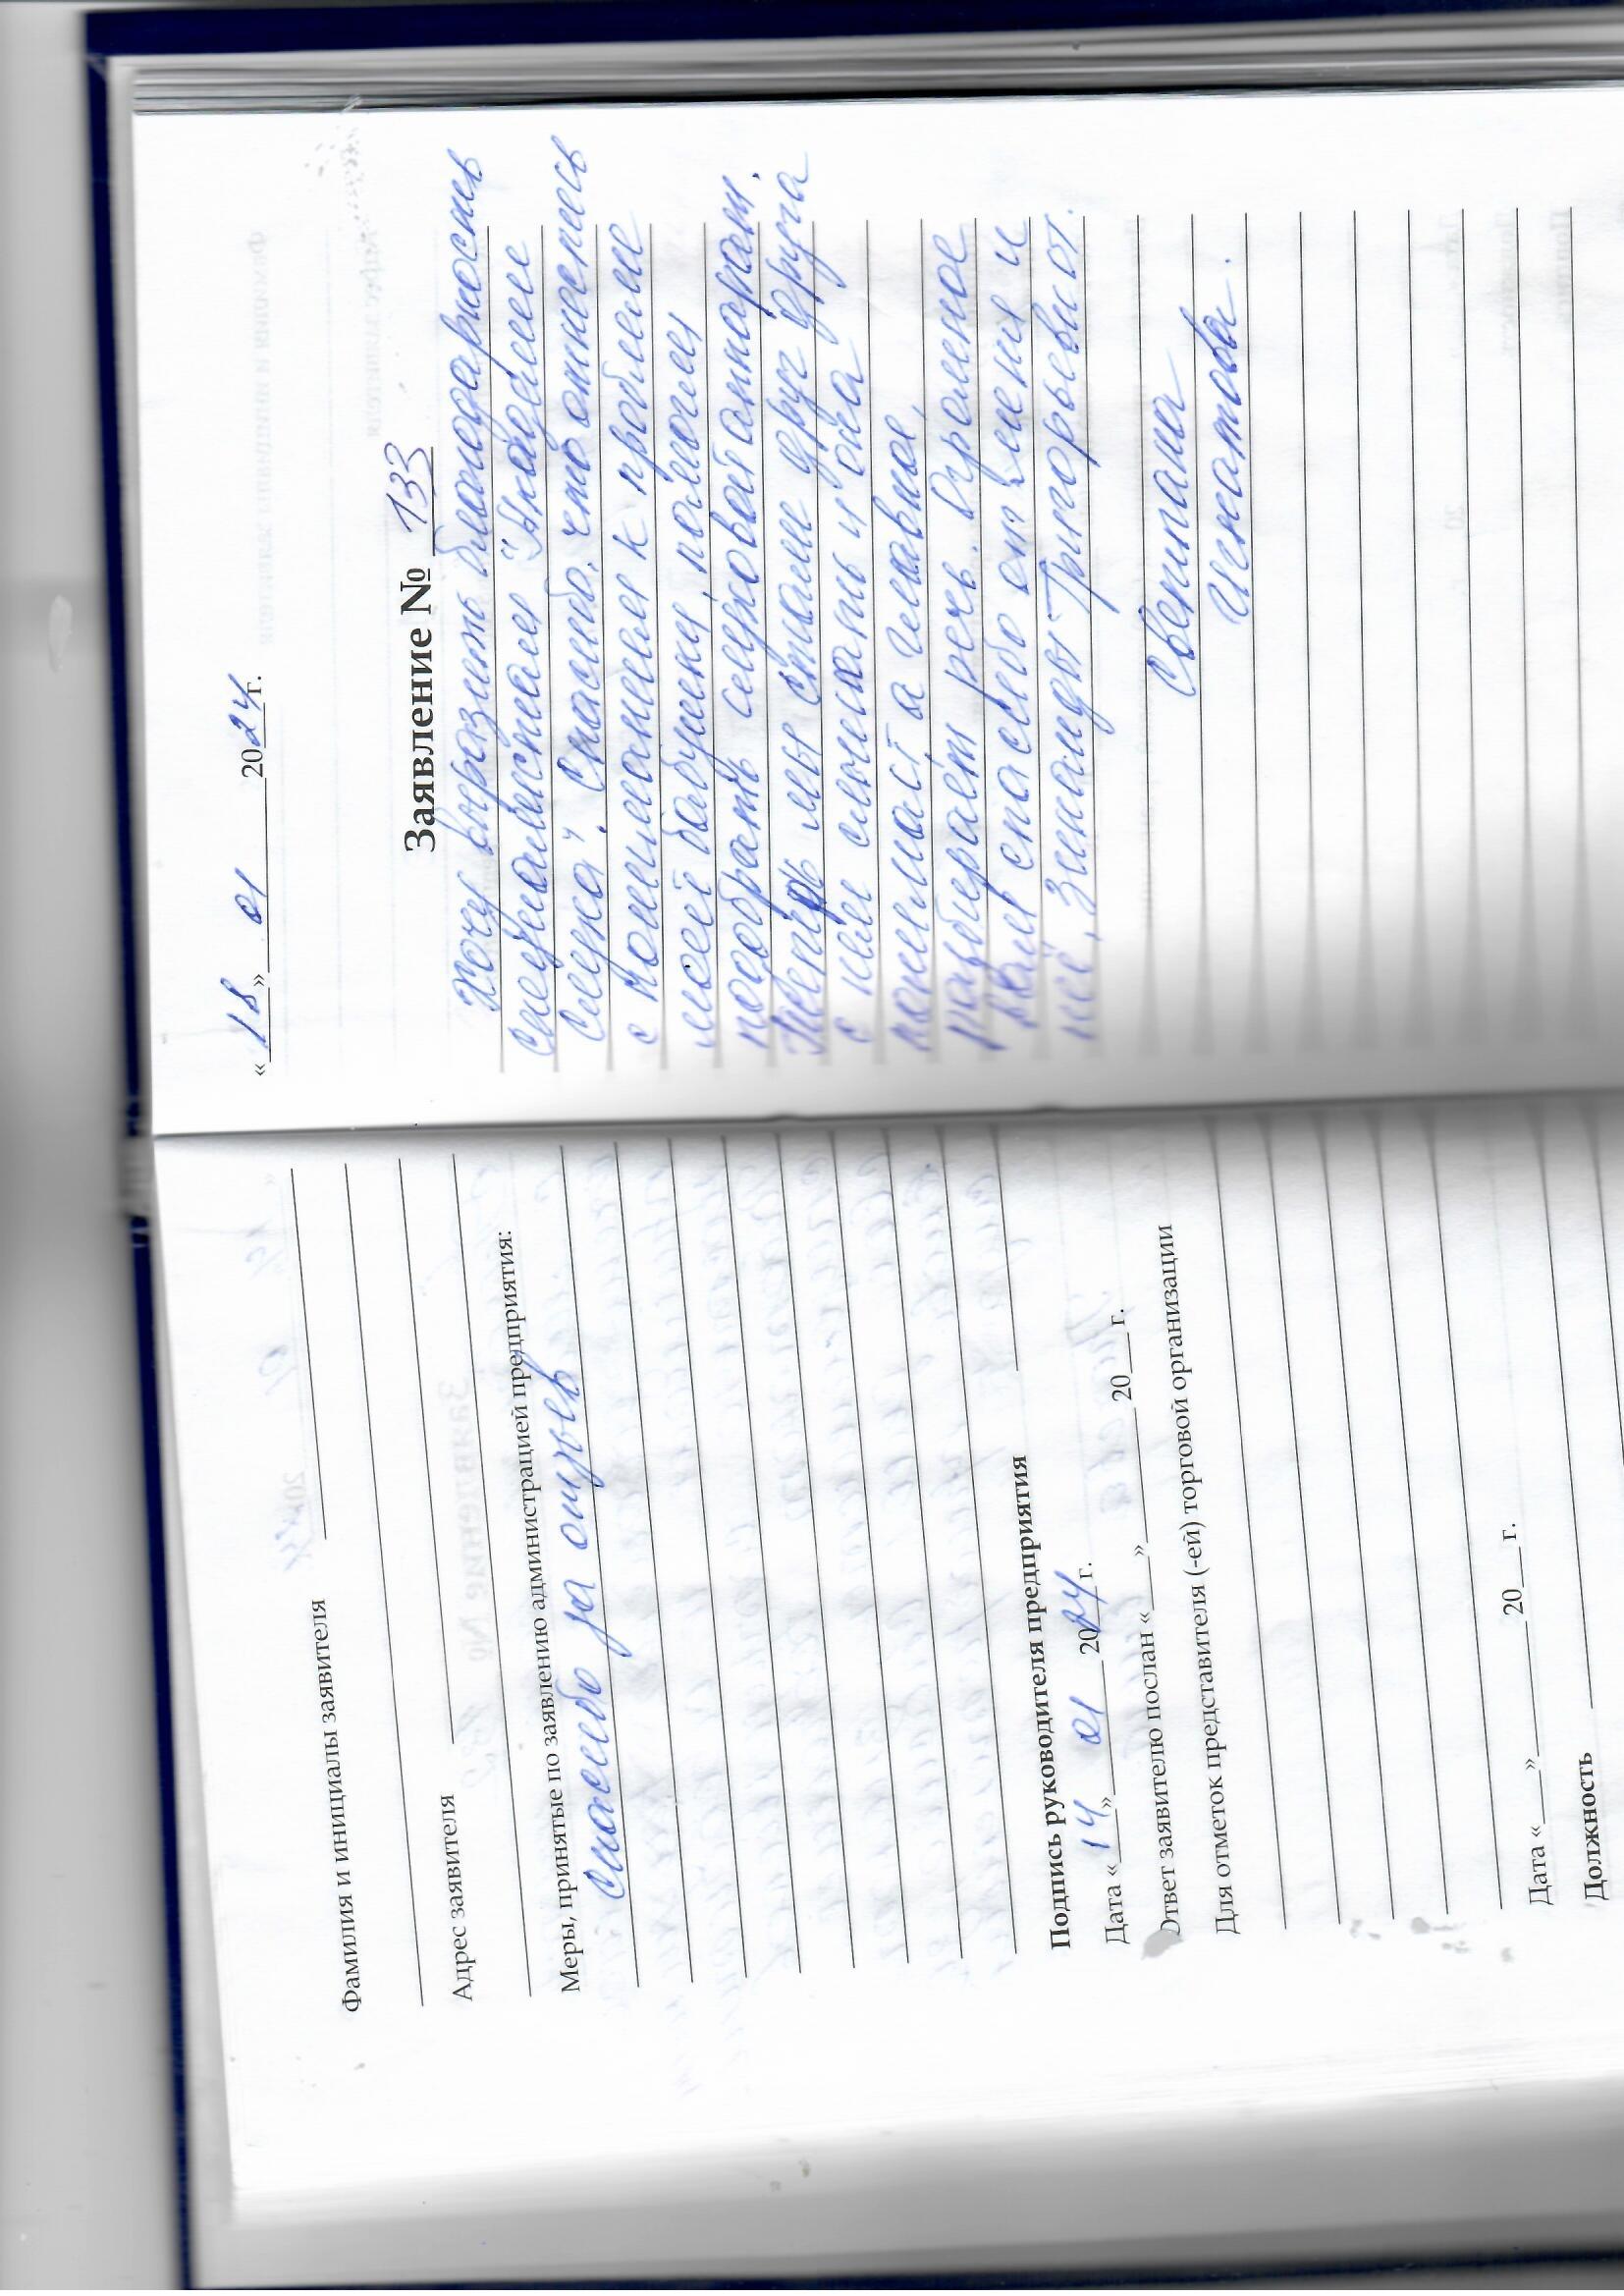 Фамилия и инициалы заявителя
Адрес заявителя
Меры, принятые по заявлению администрацией предприятия:
Спасибо за отзыв
Подпись руководителя предприятия
Дата «14» 01 2024 г.
Ответ заявителю послан « » 20 г.
Для отметок представителя (-ей) торговой организации
Дата « » 20 г.
Должность
«18» 01 2024 г.
Заявление № 133
Хочу выразить благодарность
специалистам "Академии
Слуха". Спасибо, что отнеслись
с пониманием к проблеме
моей бабушки, помогли
подобрать слуховой аппарат.
Теперь мы стали друг друга
с ней слышать и она
понимает а главное,
разбирает речь. Огромное
вам спасибо от меня и
неё, Зинаиды Григорьевны.
Светлана
Игнатова.